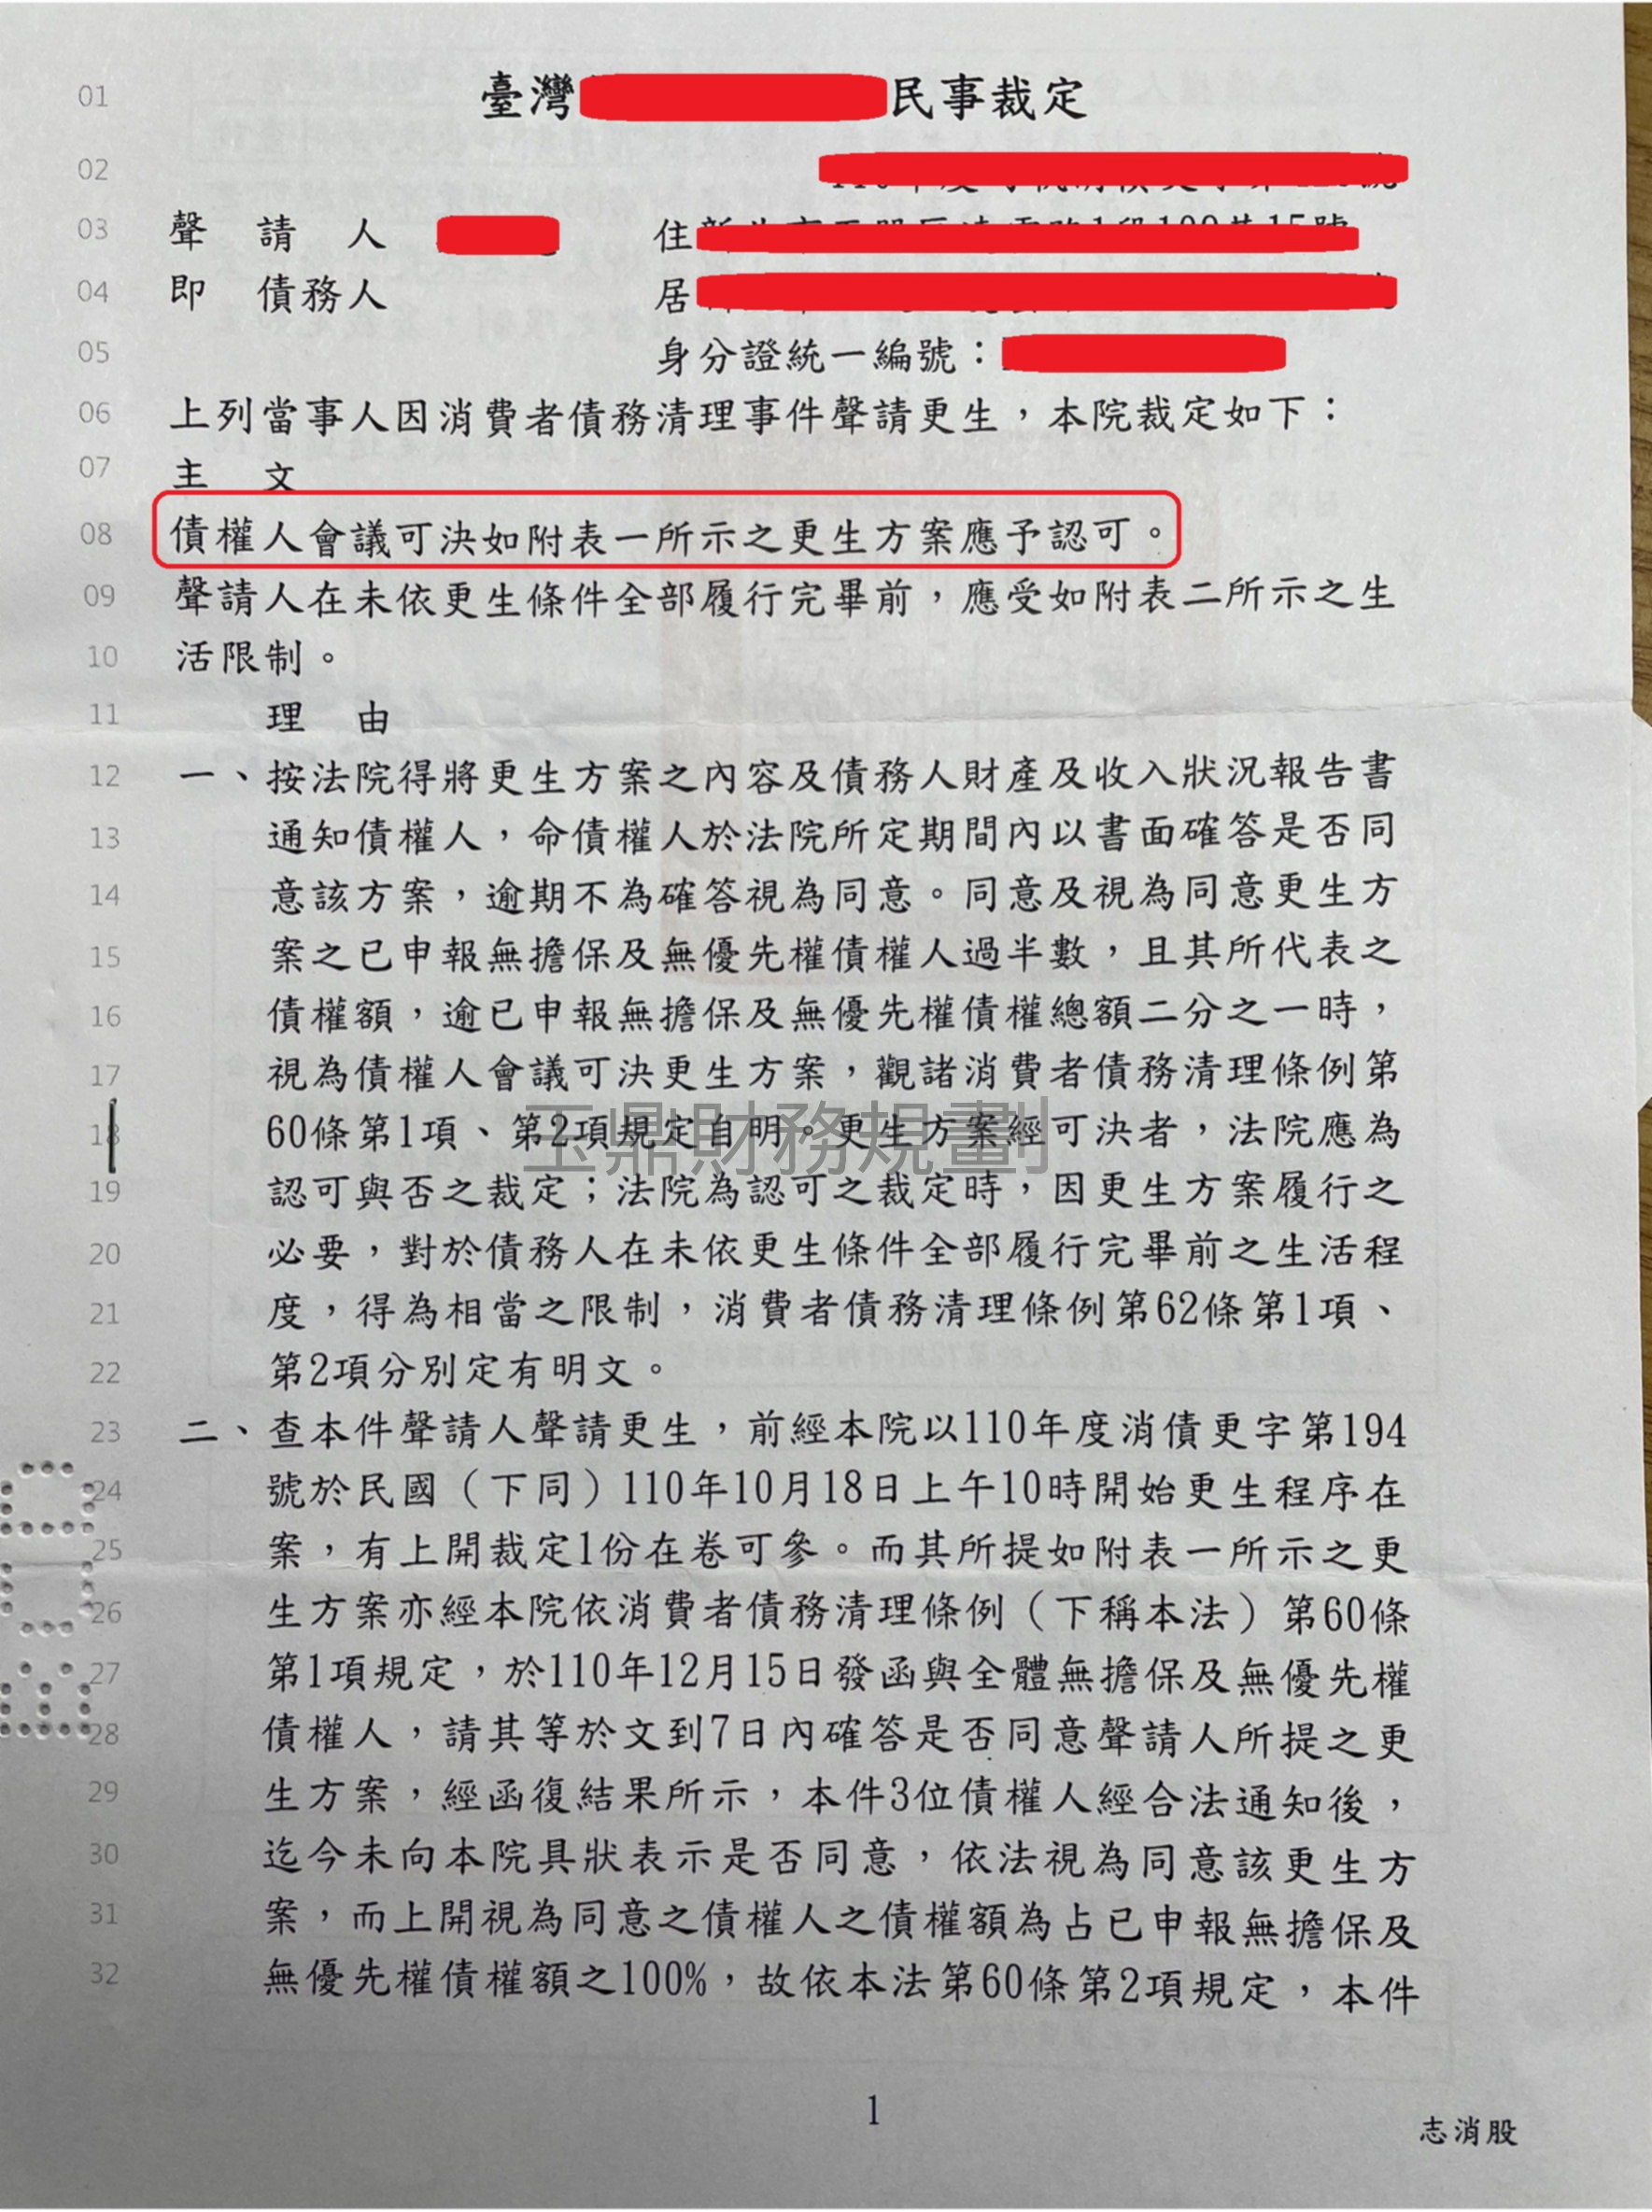 01 臺灣 民事裁定
02
03 聲請人 住
04 即債務人 居
05 身分證統一編號：
06 上列當事人因消費者債務清理事件聲請更生，本院裁定如下：
07 主文
08 債權人會議可決如附表一所示之更生方案應予認可。
09 聲請人在未依更生條件全部履行完畢前，應受如附表二所示之生
10 活限制。
11 理由
12 一、按法院得將更生方案之內容及債務人財產及收入狀況報告書
13 通知債權人，命債權人於法院所定期間內以書面確答是否同
14 意該方案，逾期不為確答視為同意。同意及視為同意更生方
15 案之已申報無擔保及無優先權債權人過半數，且其所代表之
16 債權額，逾已申報無擔保及無優先權債權總額二分之一時，
17 視為債權人會議可決更生方案，觀諸消費者債務清理條例第
18 60條第1項、第2項規定自明。更生方案經可決者，法院應為
玉鼎財務規劃
19 認可與否之裁定；法院為認可之裁定時，因更生方案履行之
20 必要，對於債務人在未依更生條件全部履行完畢前之生活程
21 度，得為相當之限制，消費者債務清理條例第62條第1項、
22 第2項分別定有明文。
23 二、查本件聲請人聲請更生，前經本院以110年度消債更字第194
24 號於民國（下同）110年10月18日上午10時開始更生程序在
25 案，有上開裁定1份在卷可參。而其所提如附表一所示之更
26 生方案亦經本院依消費者債務清理條例（下稱本法）第60條
27 第1項規定，於110年12月15日發函與全體無擔保及無優先權
28 債權人，請其等於文到7日內確答是否同意聲請人所提之更
29 生方案，經函復結果所示，本件3位債權人經合法通知後，
30 迄今未向本院具狀表示是否同意，依法視為同意該更生方
31 案，而上開視為同意之債權人之債權額為占已申報無擔保及
32 無優先權債權額之100%，故依本法第60條第2項規定，本件
1
志消股